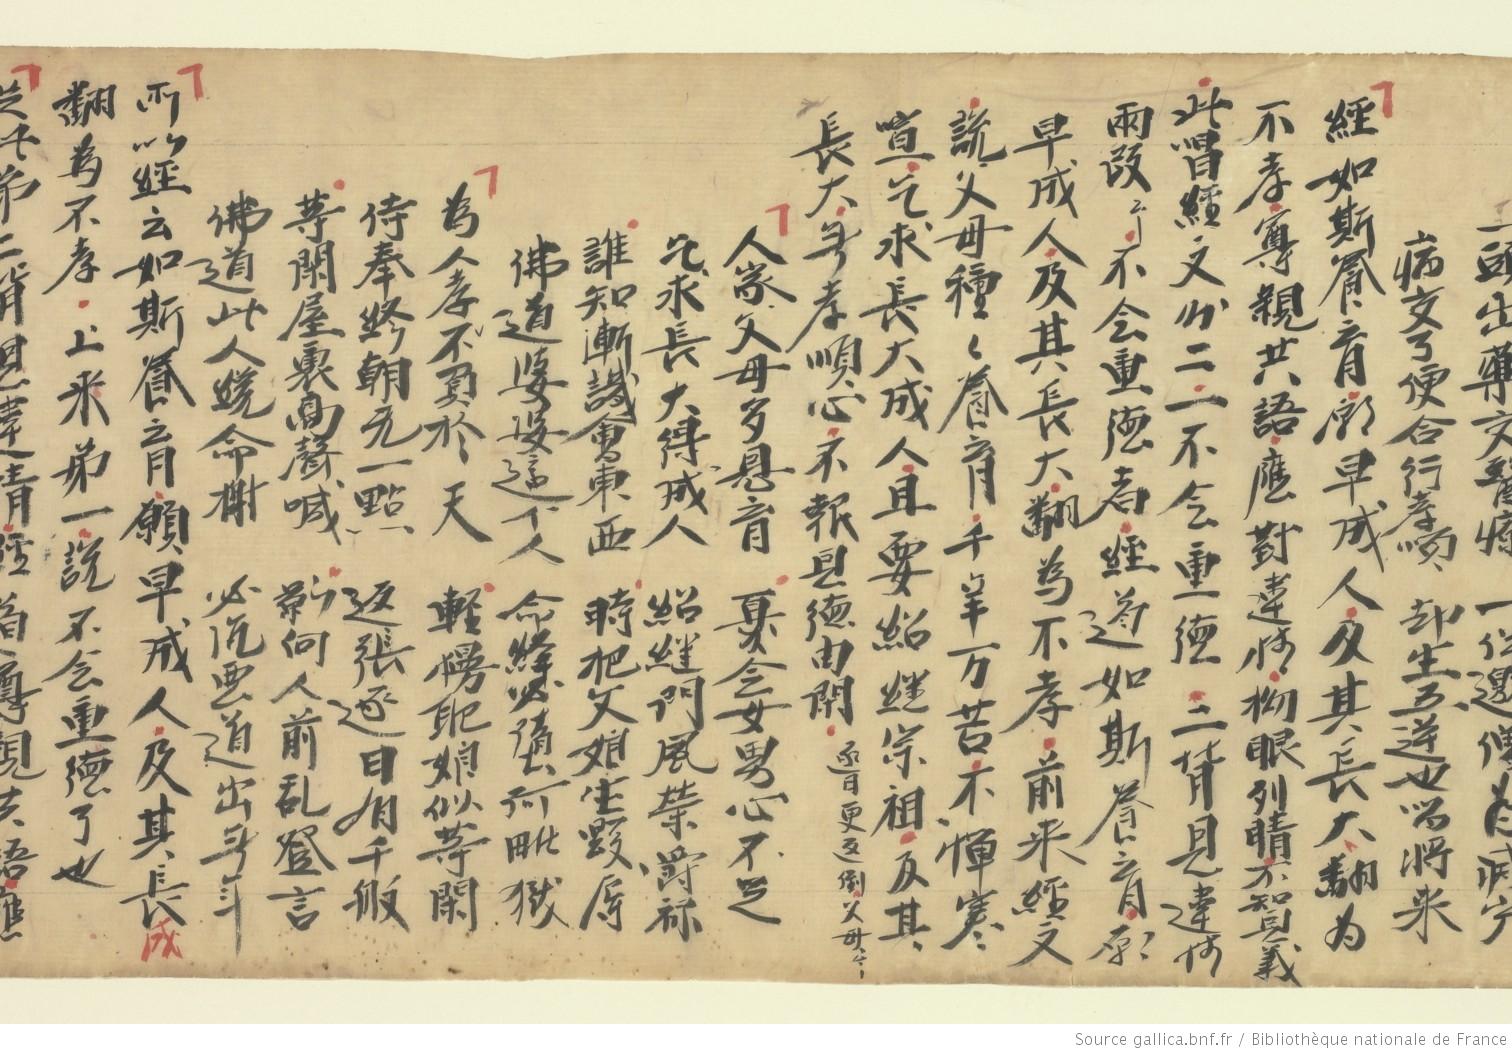 病交了便合行孝順 却生五逆也唱將来
經如斯養育願早成人及其長大翻為
不孝尊親共語應對違情拗眼列睛不知恩義
此唱經文分二一不会重德二背恩違情
兩段 不会重德者經道如斯養育願
早成人及其長大翻為不孝前来經文
說父母種〻養育千辛万苦不憚寒
暄乞求長大成人且要紹継宗祖及其
長大無孝順心不報恩德由閑逐日更返倒父母
人家父母多恩育 弃会女男心不足
乞求長大得成人 紹継門風榮爵禄
誰知漸識會東西 時把父娘生毀辱
佛道婆娑這个人 命終必墮阿毗獄
為人孝不專於天 輕慢耶娘似等閑
侍奉終朝无一點 返張逐日有千般
等閑屋裏高聲喊 人前乱登言
佛道此人 命榭 必沉惡道出無年
所以經云如斯養育願早成人及其長成
翻為不孝上来弟一說不会重德了也